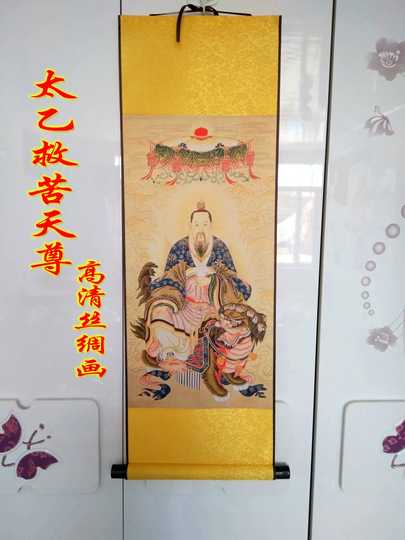 太乙救苦天尊
高清丝绸画